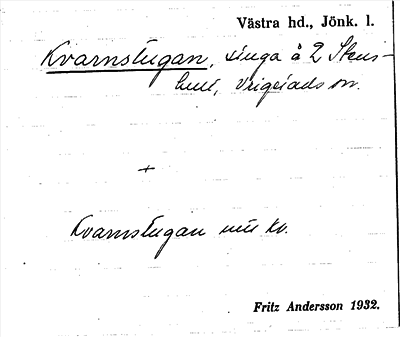 Västra hd., Jönk. l.
Kvarnstugan, stuga å 2 Stens-
hult, Vrigstads sn.
+
Kvarnstugan vid kv.
Fritz Andersson 1932.